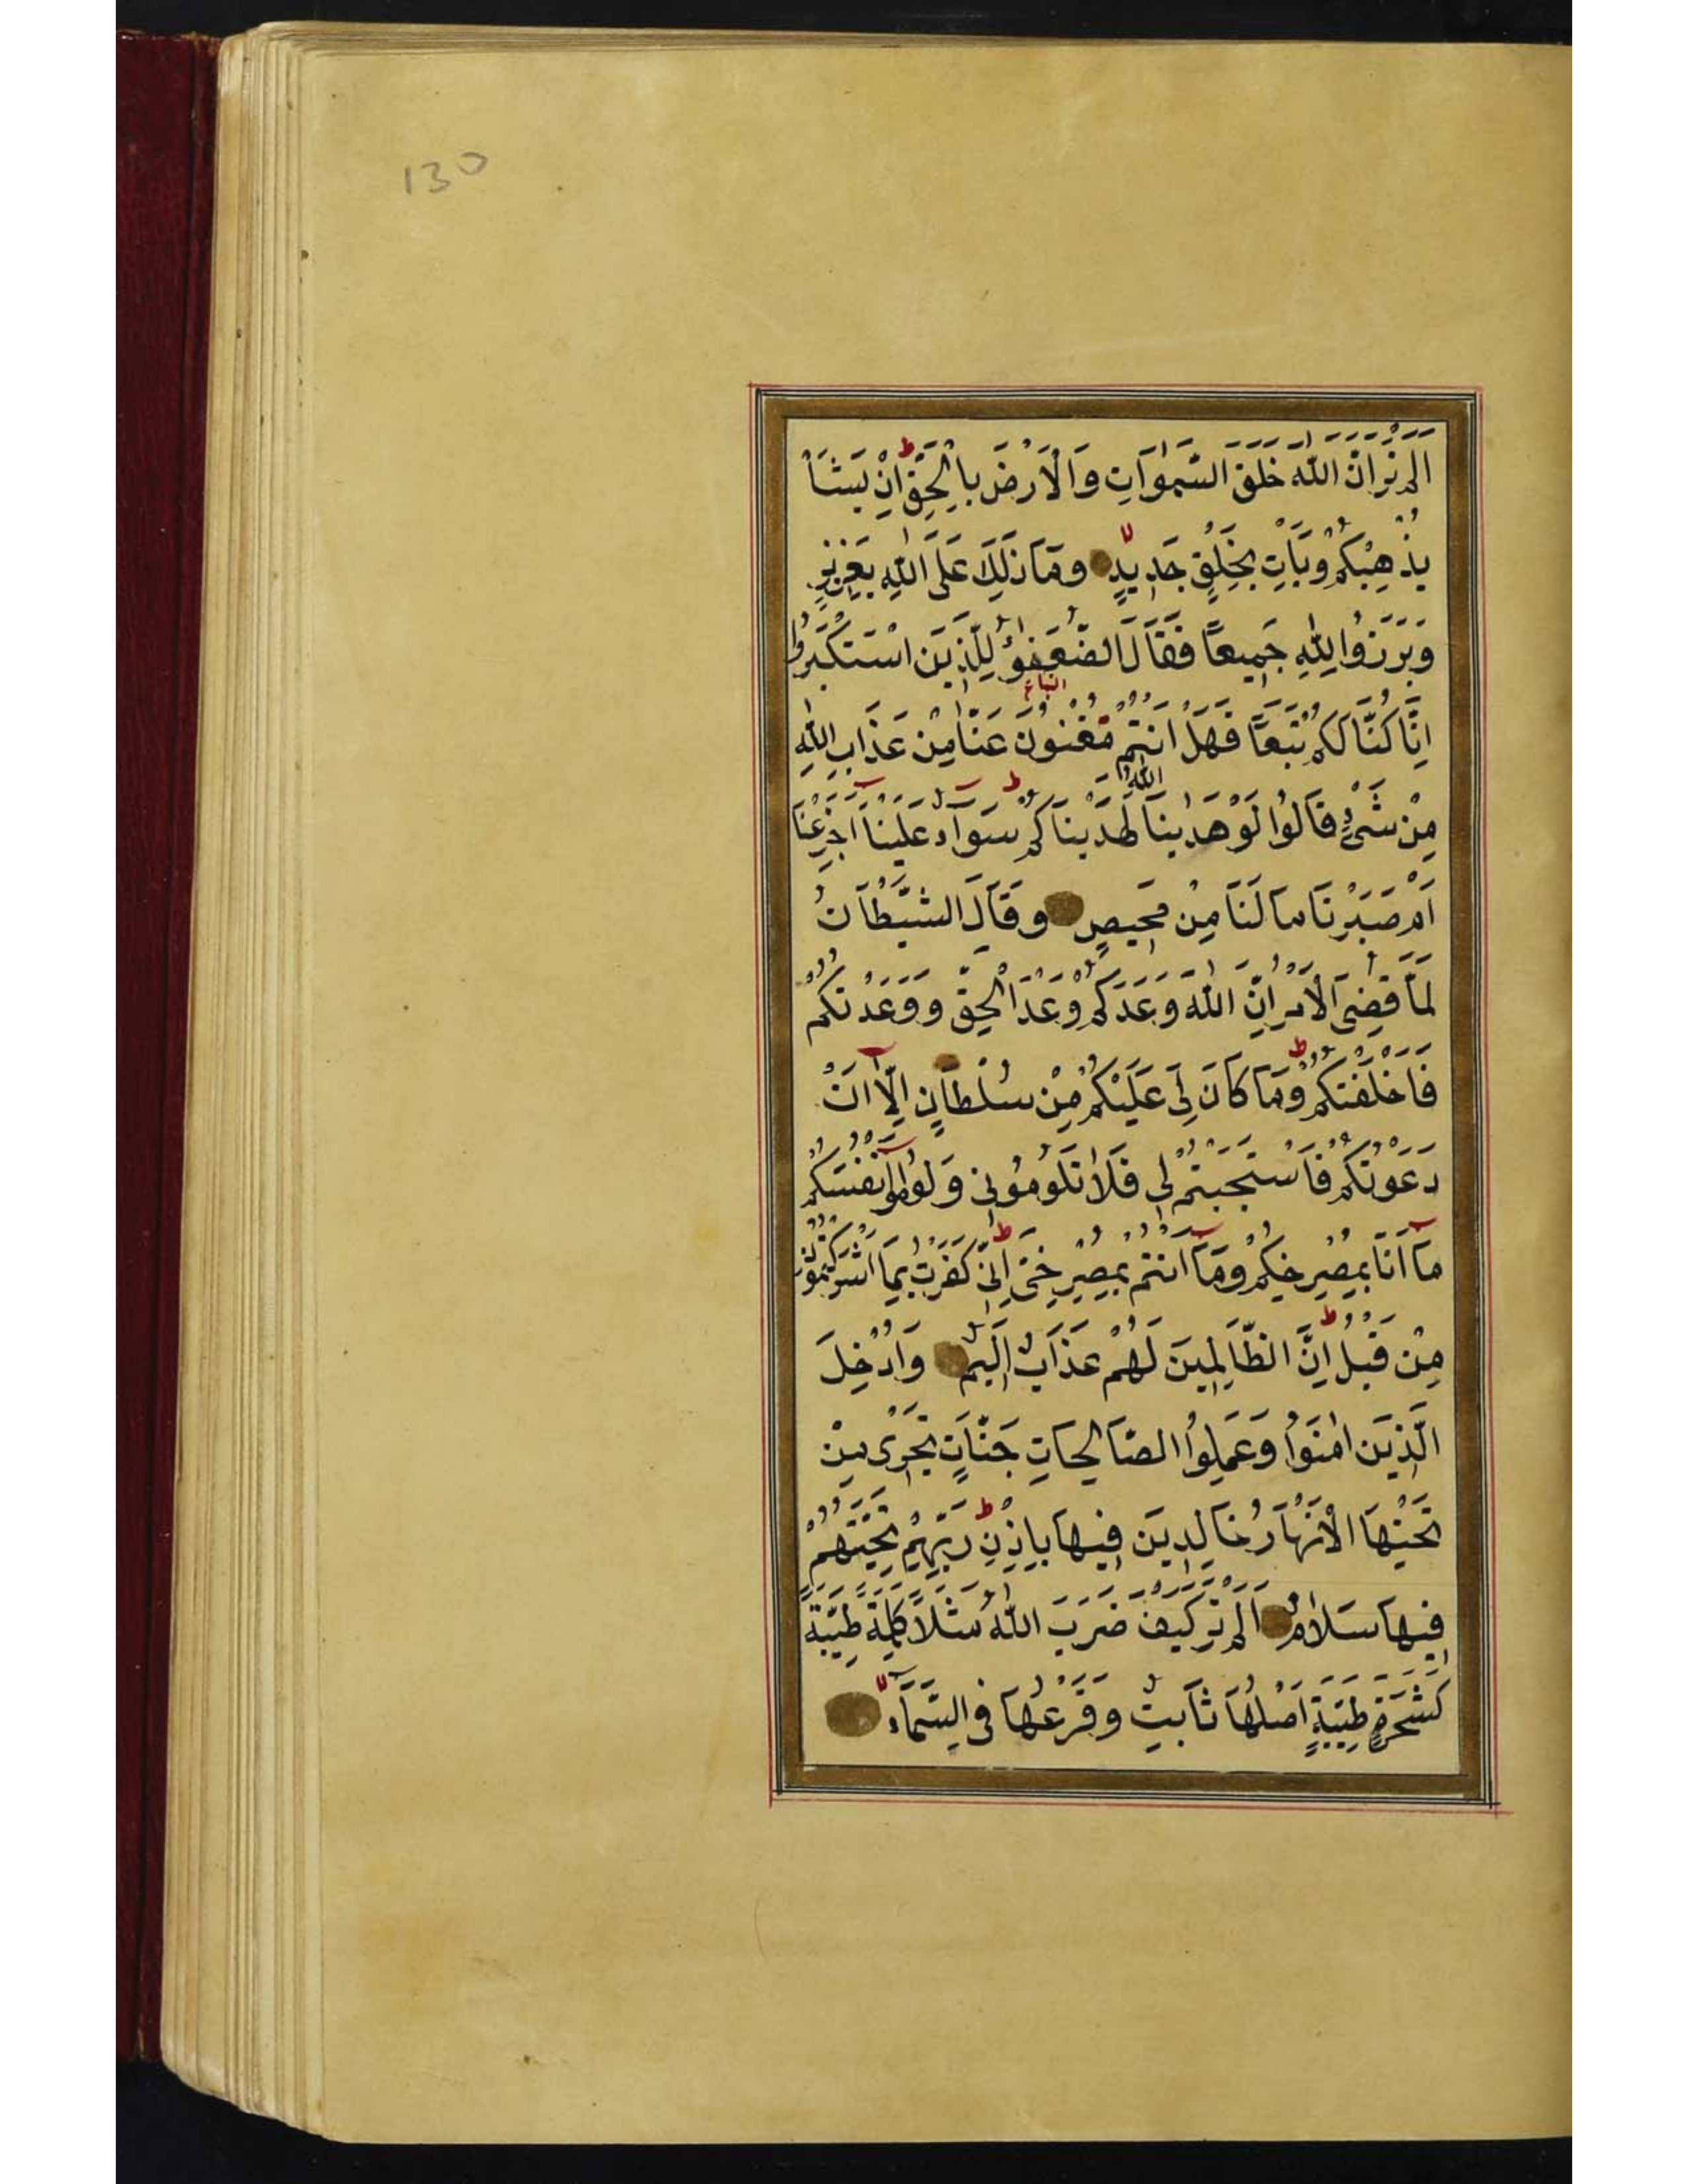 130
اَلَمْ تَرَ اَنَّ اللّٰهَ خَلَقَ السَّمٰوَاتِ وَالْاَرْضَ بِالْحَقِّ ط اِنْ يَشَأْ
يُذْهِبْكُمْ وَيَأْتِ بِخَلْقٍ جَدِيدٍ لا وَمَا ذٰلِكَ عَلَى اللّٰهِ بِعَزِيزٍ
وَبَرَزُوا لِلّٰهِ جَمِيعًا فَقَالَ الضُّعَفٰؤُ لِلَّذِينَ اسْتَكْبَرُوا
اِنَّا كُنَّا لَكُمْ تَبَعًا فَهَلْ اَنْتُمْ مُغْنُونَ عَنَّا مِنْ عَذَابِ اللّٰهِ
مِنْ شَيْءٍ قَالُوا لَوْ هَدٰينَا اللّٰهُ لَهَدَيْنَاكُمْ ط سَوَآءٌ عَلَيْنَا اَجَزِعْنَا
اَمْ صَبَرْنَا مَا لَنَا مِنْ مَحِيصٍ وَقَالَ الشَّيْطَانُ
لَمَّا قُضِيَ الْاَمْرُ اِنَّ اللّٰهَ وَعَدَكُمْ وَعْدَ الْحَقِّ وَوَعَدْتُكُمْ
فَاَخْلَفْتُكُمْ ط وَمَا كَانَ لِيَ عَلَيْكُمْ مِنْ سُلْطَانٍ اِلَّآ اَنْ
دَعَوْتُكُمْ فَاسْتَجَبْتُمْ لِي فَلَا تَلُومُونِي وَلُومُوا اَنْفُسَكُمْ
مَآ اَنَا بِمُصْرِخِكُمْ وَمَآ اَنْتُمْ بِمُصْرِخِيَّ ط اِنِّي كَفَرْتُ بِمَا اَشْرَكْتُمُونِ
مِنْ قَبْلُ ط اِنَّ الظَّالِمِينَ لَهُمْ عَذَابٌ اَلِيمٌ وَاُدْخِلَ
الَّذِينَ اٰمَنُوا وَعَمِلُوا الصَّالِحَاتِ جَنَّاتٍ تَجْرِى مِنْ
تَحْتِهَا الْاَنْهَارُ خَالِدِينَ فِيهَا بِاِذْنِ رَبِّهِمْ ط تَحِيَّتُهُمْ
فِيهَا سَلَامٌ اَلَمْ تَرَ كَيْفَ ضَرَبَ اللّٰهُ مَثَلًا كَلِمَةً طَيِّبَةً
كَشَجَرَةٍ طَيِّبَةٍ اَصْلُهَا ثَابِتٌ وَفَرْعُهَا فِي السَّمَآءِ لا